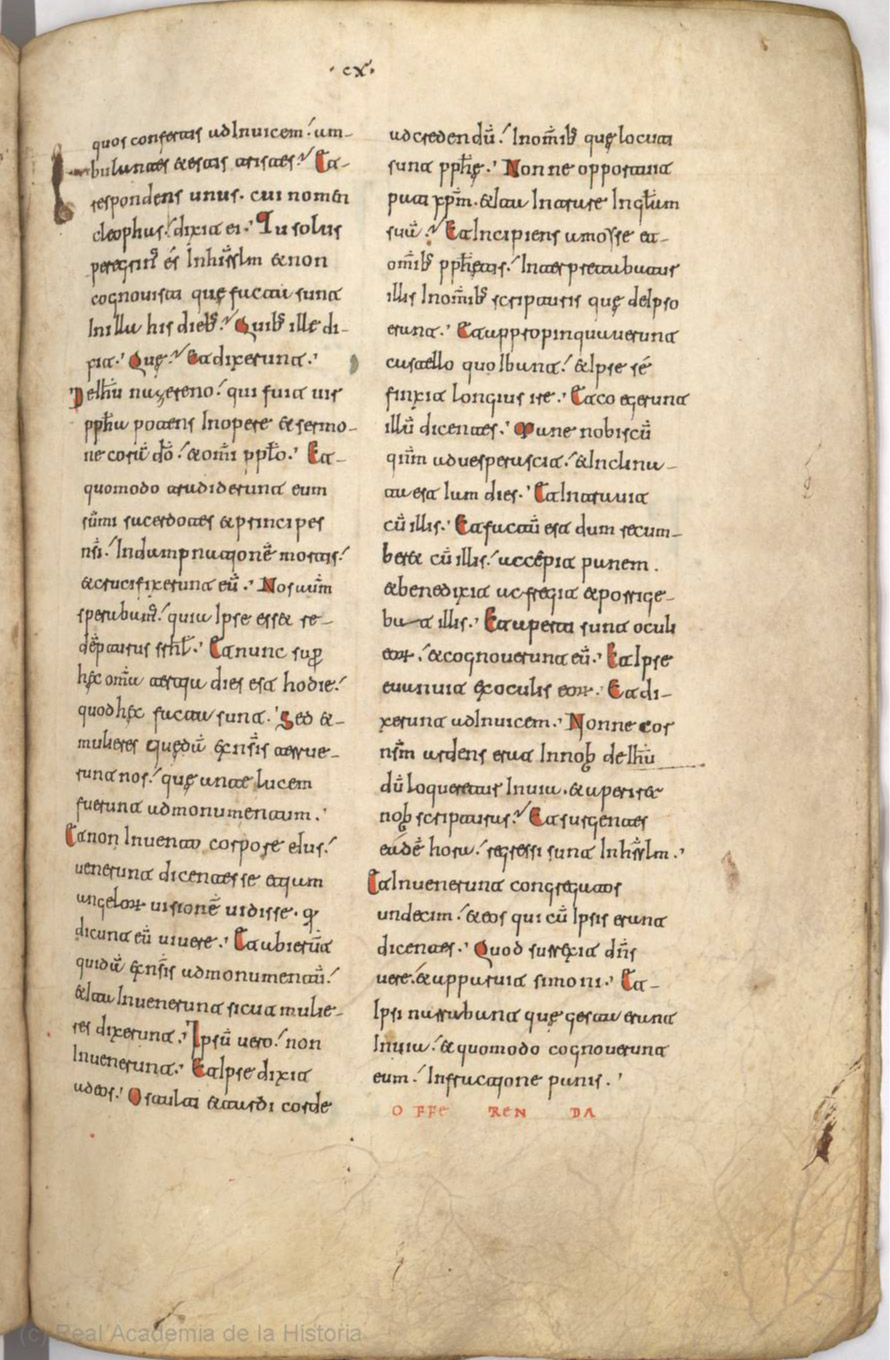 · cx ·
quos confertis ad Inuicem! am-
bulantes & estis tristes? Et-
respondens unus. cui nomen
cleophas! dixit ei. Tu solus
peregrin̄ es Inhr̄slm & non
cognouisti quę facta sunt
In illa his dieb; Quib; ille di-
xit. Quę? Et dixerunt.
De Ihū nazareno! qui fuit uir
pph̄a potens In opere & sermo-
ne corā dō! & om̄i pplo. Et-
quomodo tradiderunt eum
sum̄i sacerdotes & principes
nr̄i! In dampnationē mortis!
& crucifixerunt eū. Nos autm̄
sperabam! quia Ipse esset re-
dēpturus srhl. Et nunc sup
hęc omīa tertia dies est hodie!
quod hęc facta sunt. Sed &-
mulieres quędā ex nr̄is terrue-
runt nos! quę ante lucem
fuerunt ad monumentum.
Et non Inuento corpore eIus!
uenerunt dicentes se etiam
angelorum uisionē uidisse. qi
dicunt eū uiuere. Et abierūt
quidā ex nr̄is ad monumentū!
& Ita Inuenerunt sicut mulie-
res dixerunt. Ipsū uero! non
Inuenerunt. Et Ipse dixit
ad eos. O stulti & tardi corde
ad credendū! In om̄ib; quę locuti
sunt pph̄ę. Nonne opportuit
pati xpm̄. & Ita Intrare In gl̄am
suā? Et Incipiens a mosse et-
om̄ib; pph̄etis! Interpretabatur
illis In om̄ib; scripturis quę de Ipso
erunt. Et appropinquauerunt
castello quo Ibant! & Ipse sē
finxit longius ire. Et coegerunt
illū dicentes. Mane nobiscū
qnm̄ aduesperascit! & Inclina-
ta est Iam dies. Et Intrauit
cū illis. Et factū est dum recum-
beret cū illis! accepit panem.
& benedixit ac fregit & porrige-
bat illis. Et aperti sunt oculi
eorum! & cognouerunt eū. Et Ipse
euanuit ex oculis eorum. Et di-
xerunt ad Inuicem. Nonne cor
nrm̄ ardens erat In nob de Ihū
dū loqueretur In uia. & aperiret
nob scripturas? Et surgentes
eādē hora! regressi sunt In hr̄slm.
Et Inuenerunt congregatos
undecim! & eos qui cū Ipsis erant
dicentes. Quod surrexit dn̄s
uere! & apparuit simoni. Et-
Ipsi narrabant quę gesta erant
In uia! & quomodo cognouerunt
eum! In fractione panis.
OFFE REN DA
(c) Real Academia de la Historia